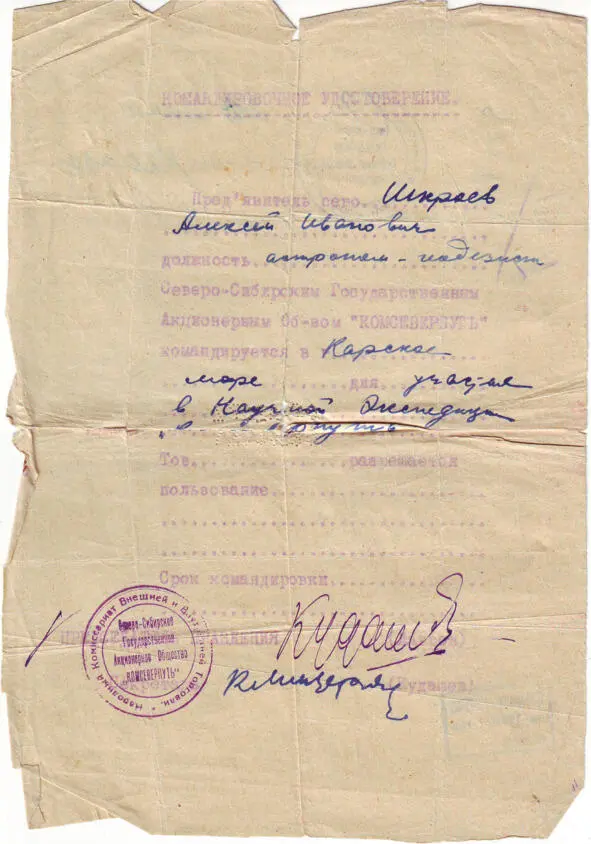 КОМАНДИРОВОЧНОЕ УДОСТОВЕРЕНИЕ.
Пред'явитель сего Шкраев
Алексей Иванович
должность астроном-геодезист
Северо-Сибирским Государственным
Акционерным Об-вом "КОМСЕВЕРПУТЬ"
командируется в Карское
море для участия
в Научной Экспедиции
Тов. разрешается
пользование
Срок командировки
Народный Комиссариат Внешней и Внутренней Торговли.
Северо-Сибирское
Государственное
Акционерное Общество
"КОМСЕВЕРПУТЬ"